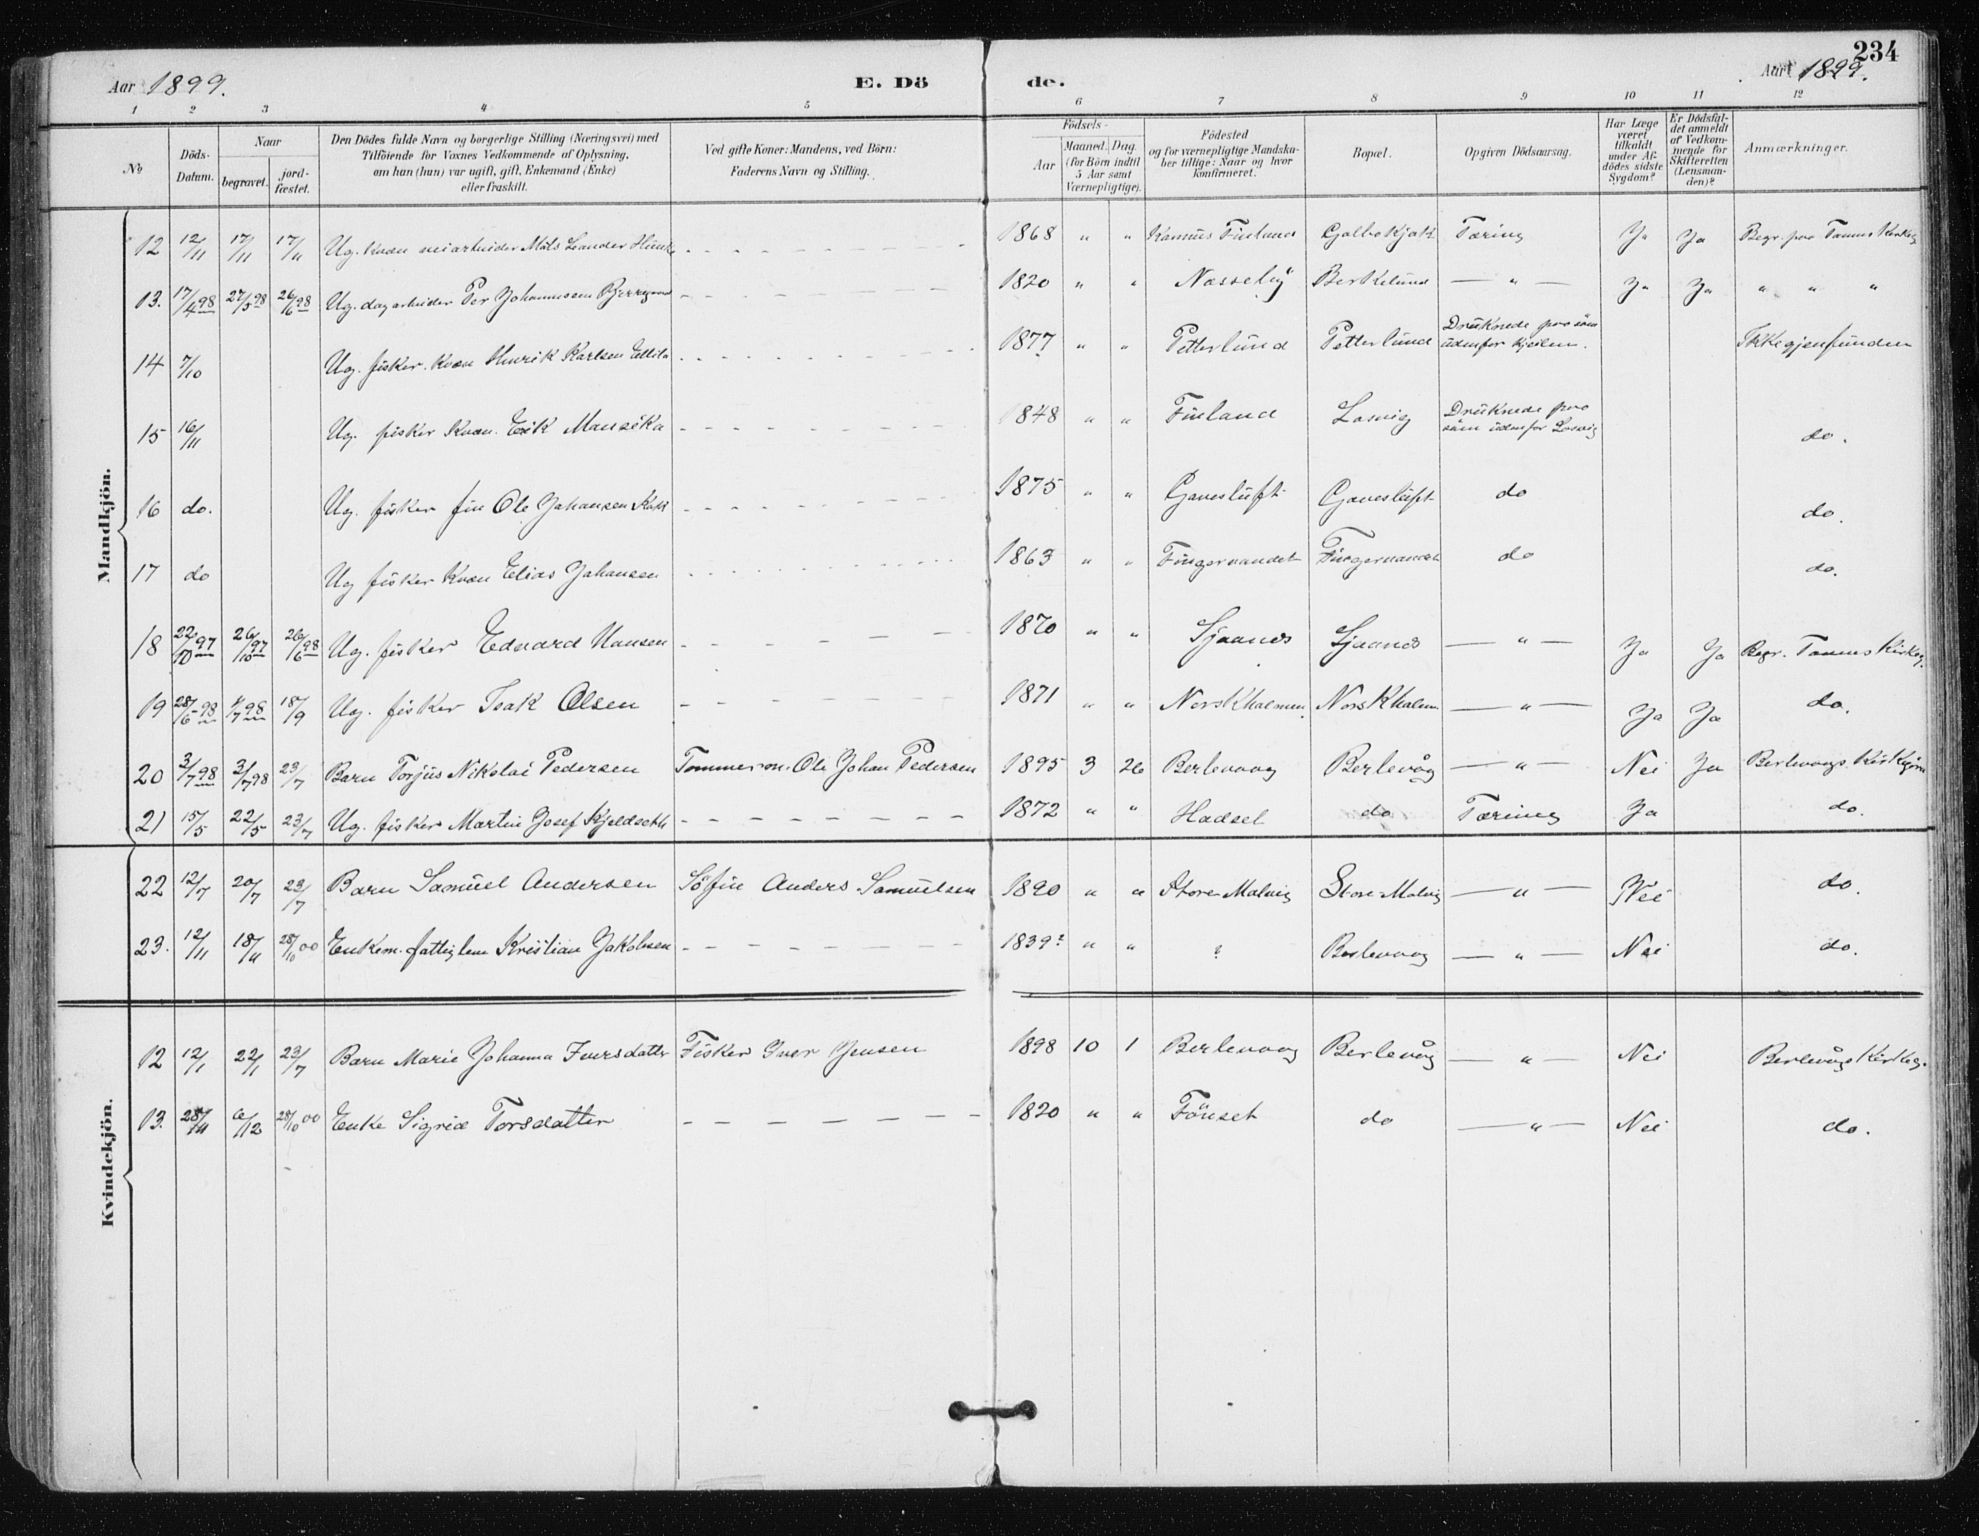 234
Aar 1899. E. Döde. Aar 1899.
1 2 3 4 5 6 7 8 9 10 11 12
No
Döds-Datum.
Naar
begravet.
jordfæstet.
Den Dödes fulde Navn og borgerlige Stilling (Næringsvei) med
Tilföiende for Voxnes Vedkommende af Oplysning,
om han (hun) var ugift, gift, Enkemand (Enke)
eller fraskilt.
Ved gifte Koner: Mandens, ved Börn:
Faderens Navn og Stilling.
Födsels-
Aar
Maaned. Dag
(for Börn indtil
5 Aar samt
Værnepligtige).
Födested
og for værnepligtige Mandska-
ber tillige: Naar og hvor
konfirmeret.
Bopæl.
Opgiven Dödsaarsag.
Har Læge
været
tilkaldt
under Af-
dödes sidste
Sygdom?
Er Dödsfal-
det anmeldt
af Vedkom-
mende for
Skifteretten
(Lensman-
den)?
Anmærkninger.
Mandkjön.
12 12/11 17/11 17/11 Ug. Kvæn Mats Leander 1868 " " Finland Tæring Ja Ja Begr. paa Tanens Kirkeg
13. 17/4 98 27/5 98 26/6 98 Ug. dagarbeider Per Johannesen 1820 " " Nesseby Berkelund — " — Ja Ja " " "
14 7/10 Ug. fisker. Kvæn Henrik Karlsen 1877 " " Petterlund Petterlund Druknede paa söen udenfor Ikke gjenfunden
15 16/11 Ug. fisker Kvæn. Erik Mansika 1848 " " Finland Losvig Druknede paa söen udenfor Losvig do.
16 do. Ug. fisker fin Ole Johansen 1875 " " Gavesluft Gavesluft do do.
17 do Ug fisker Kvæn Elias Johansen 1863 " " Fingervandet Fingervandet do do.
18 22/10 97 26/10 97 26/6 98 Ug. fisker Edvard Hansen 1870 " " Sjaanes Sjaanes — " — Ja Ja Begr. Tanens Kirkeg.
19 28/6 98 /7 98 18/9 Ug. fisker Isak Olsen 1871 " " Norskholmen Norskholm — " — Ja Ja do.
20 3/7 98 3/7 98 23/7 Barn Torjus Nikolai Pedersen Tømmerm. Ole Johan Pedersen 1895 3 26 Berlevaag Berlevåg — " — Nei Ja Berlevaags Kirkegård
21 15/5 22/5 23/7 Ug. fisker Martin Josef Kjeldseth 1872 " " Hadsel do Tæring Ja do.
22 12/7 20/7 23/7 Barn Samuel Andersen Söfin Anders Samuelsen 1890 " " Store Malvig Store Malvig — " — Nei do.
23. 12/11 18/11 28/10 00 Enkem. fattiglem Kristian Jakobsen 1839? " " ? Berlevaag — " — Nei do.
Kvindekjön.
12 12/1 22/1 23/7 Barn Marie Johanna Iversdatter Fisker Iver Jensen 1898 10 1 Berlevaag Berlevåg — " — Nei Berlevåg Kirkeg.
13. 28/11 6/12 28/10 00 Enke Sigrid Torsdatter 1820 " " Tönset do — " — Nei do.